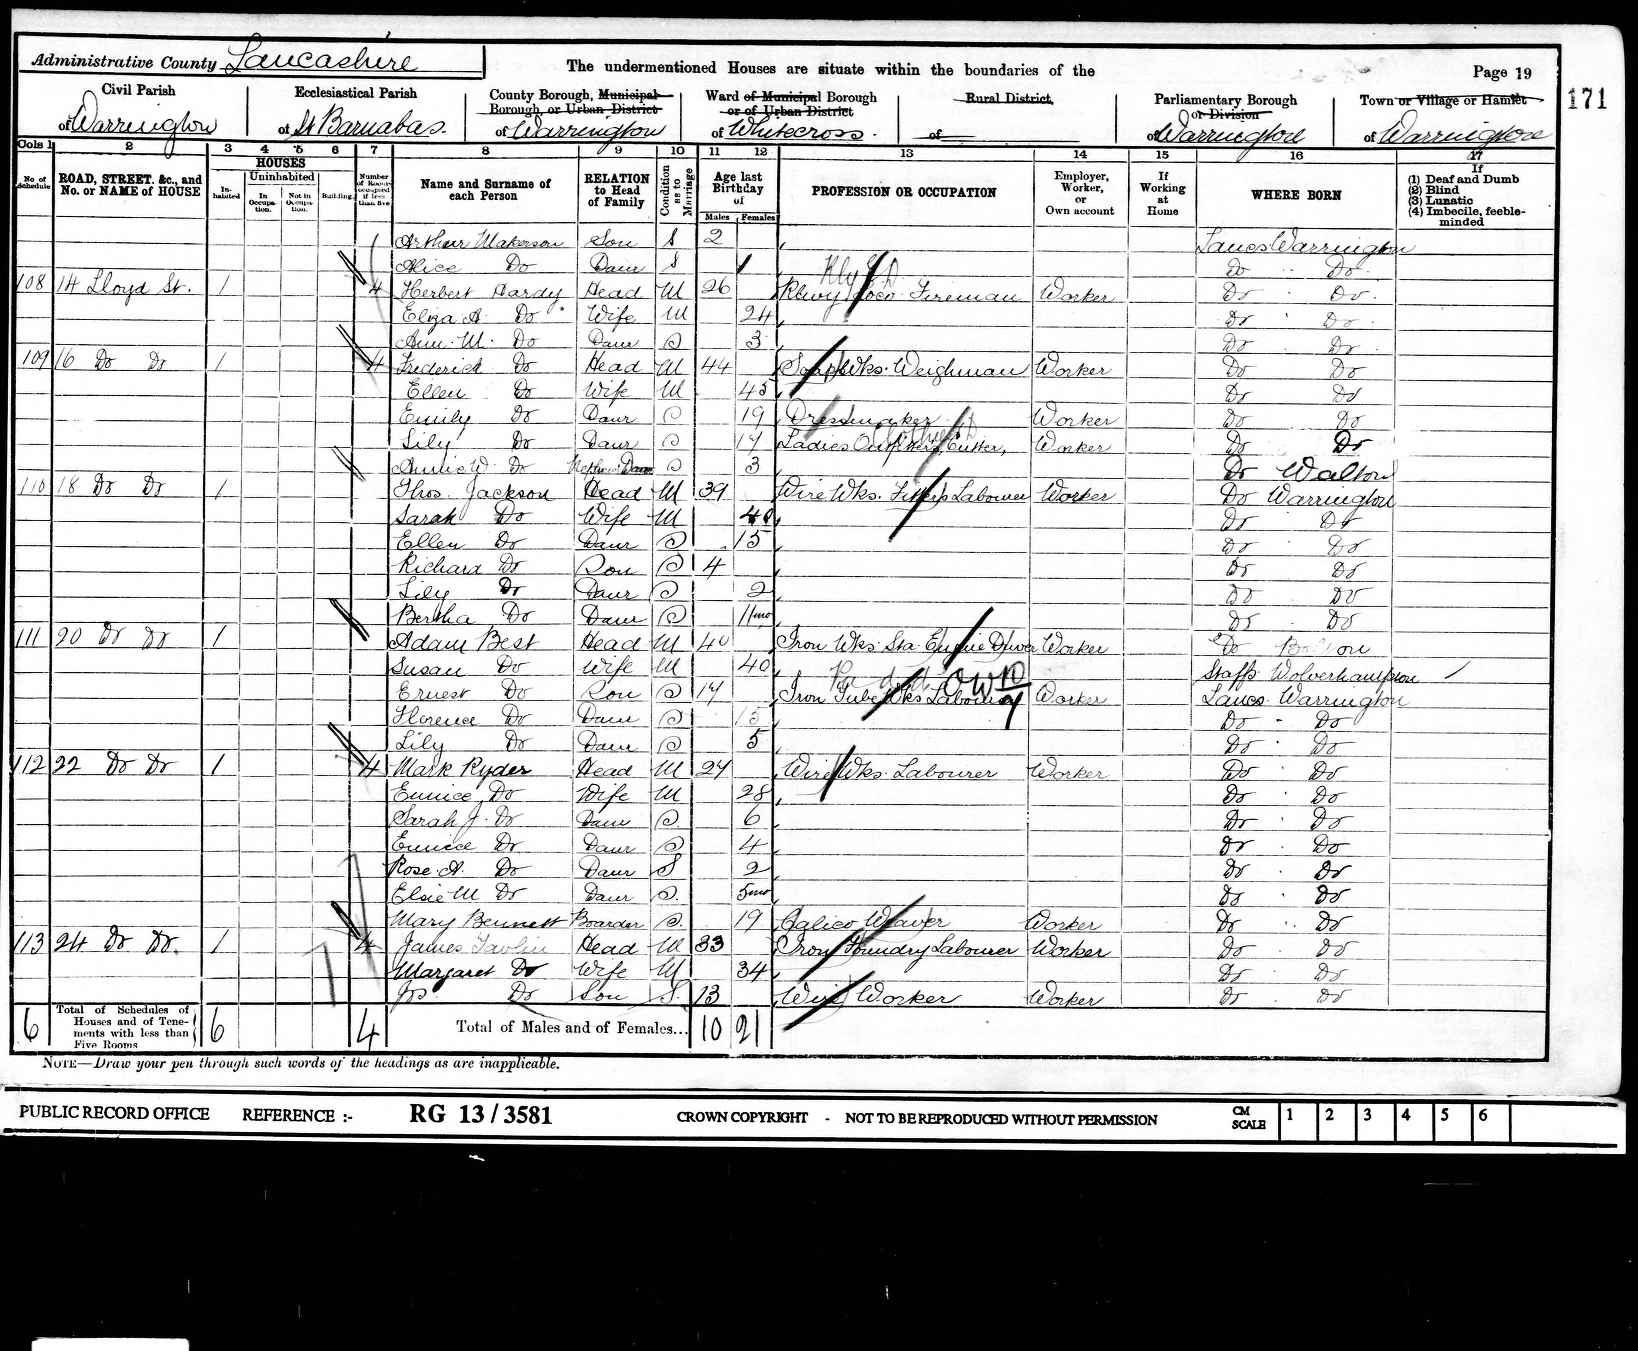 Administrative County Lancashire
The undermentioned Houses are situate within the boundaries of the
Page 19
171
Civil Parish of Warrington
Ecclesiastical Parish of St Barnabas.
County Borough, Municipal Borough, or Urban District of Warrington
Ward of Municipal Borough or of Urban District of Whitecross.
Rural District, of
Parliamentary Borough or Division of Warrington
Town or Village or Hamlet of Warrington
Cols 1 2 3 4 5 6 7 8 9 10 11 12 13 14 15 16 17
No of Schedule
ROAD, STREET, &c., and No. or NAME of HOUSE
HOUSES
In-habited
Uninhabited
In Occupa-tion.
Not in Occupa-tion.
Building
Number of Rooms occupied if less than five
Name and Surname of each Person
RELATION to Head of Family
Condition as to Marriage
Age last Birthday of
Males Females
PROFESSION OR OCCUPATION
Employer, Worker, or Own account
If Working at Home
WHERE BORN
If (1) Deaf and Dumb (2) Blind (3) Lunatic (4) Imbecile, feeble-minded
Arthur Makerson Son S 2 Lancs Warrington
Alice Do Daur S 1 Do Do
108 14 Lloyd St. 1 4 Herbert Hardy Head M 26 Rlwy Loco. Fireman Worker Do Do.
Eliza A. Do Wife M 24 Do Do
Ann. M. Do Daur S 3 Do Do
109 16 Do Do 1 4 Frederick Do Head M 44 Soap Wks. Weighman Worker Do Do
Ellen Do Wife M 45 Do Do
Emily Do Daur S 19 Dressmaker Worker Do Do
Lily Do Daur S 17 Ladies Outfitters, Cutter, Worker Do Do
Annie W. Do Daur S 3 Do Walton
110 18 Do Do 1 Thos. Jackson Head M 39 Wire Wks. Fitters Labourer Worker Do Warrington
Sarah Do Wife M 40 Do Do
Ellen Do Daur S 15 Do Do
Richard Do Son S 4 Do Do
Lily Do Daur S 2 Do Do
Bertha Do Daur S 11mo Do Do
111 20 Do Do 1 Adam Best Head M 40 Iron Wks. Sta. Engine Driver Worker Do
Susan Do Wife M 40 Staffs Wolverhampton
Ernest Do Son S 17 Iron Tube Wks Labourer Worker Lancs. Warrington
Florence Do Daur S 15 Do Do
Lily Do Daur S 5 Do Do
112 22 Do Do 1 4 Mark Ryder Head M 27 Wire Wks. Labourer Worker Do Do
Eunice Do Wife M 28 Do Do
Sarah J. Do Daur S. 6 Do Do
Eunice Do Daur S 4 Do Do
Rose. A. Do Daur S 2 Do Do
Elsie M Do Daur S. 5mo Do Do
Mary Bennett Boarder S. 19 Calico Weaver Worker Do Do
113 24 Do Do. 1 4 James Head M 33 Iron Foundry Labourer Worker Do Do
Margaret Do Wife M 34 Do Do
Jos. Do Son S. 13 Wire Worker Worker Do Do
6 Total of Schedules of Houses and of Tene-ments with less than Five Rooms 6 4 Total of Males and of Females... 10 21
NOTE—Draw your pen through such words of the headings as are inapplicable.
PUBLIC RECORD OFFICE REFERENCE :- RG 13/3581 CROWN COPYRIGHT - NOT TO BE REPRODUCED WITHOUT PERMISSION CM SCALE 1 2 3 4 5 6